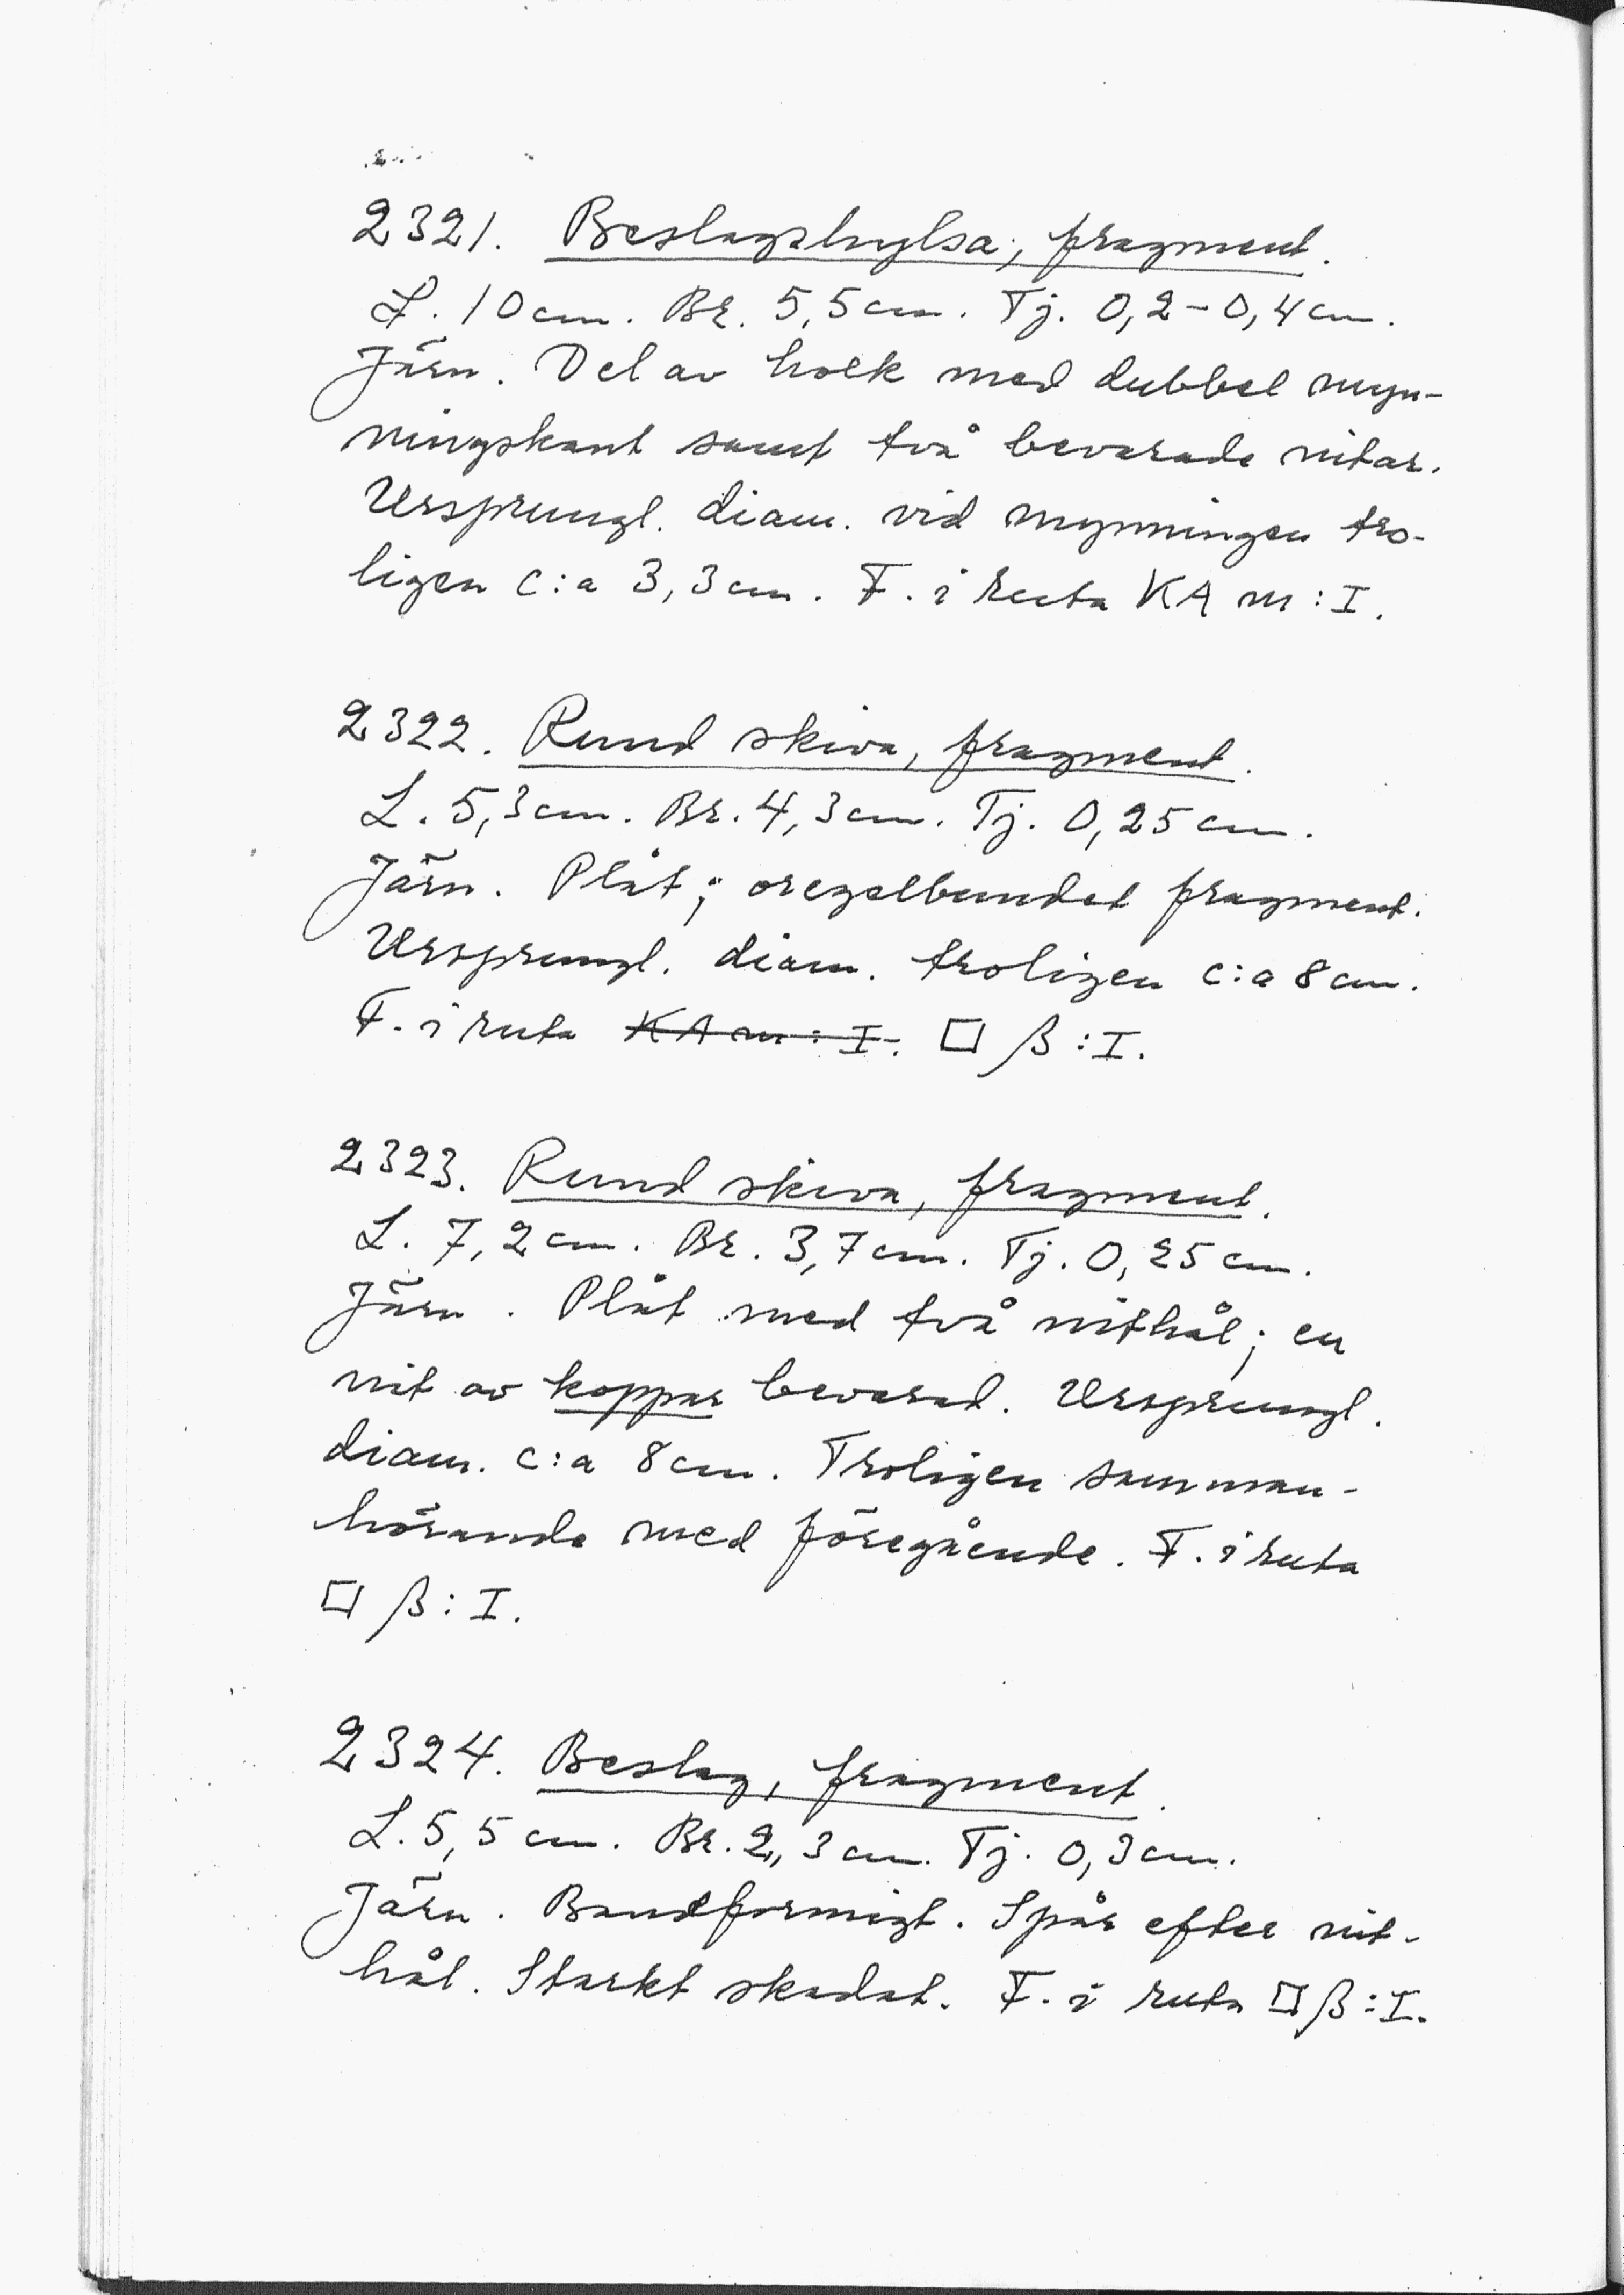 2321. Beslagshylsa; fragment.
L. 10 cm. Br. 5,5 cm. Tj. 0,2-0,4 cm.
Järn. Del av holk med dubbel myn-
ningskant samt två bevarade nitar.
Ursprungl. diam. vid mynningen tro-
ligen c:a 3,3 cm. F. i ruta KA m:I.
2322. Rund skiva, fragment.
L. 5,3 cm. Br. 4,3 cm. Tj. 0,25 cm.
Järn. Plåt; oregelbundet fragment.
Ursprungl. diam. troligen c:a 8 cm.
F. i ruta KA m:I. □ β:I.
2323. Rund skiva, fragment.
L. 7,2 cm. Br. 3,7 cm. Tj. 0,25 cm.
Järn. Plåt med två nithål; en
nit av koppar bevarad. Ursprungl.
diam. c:a 8 cm. Troligen samman-
hörande med föregående. F. i ruta
□ β:I.
2324. Beslag, fragment.
L. 5,5 cm. Br. 2,3 cm. Tj. 0,3 cm.
Järn. Bandformigt. Spår efter nit-
hål. Starkt skadat. F. i ruta □ β:I.